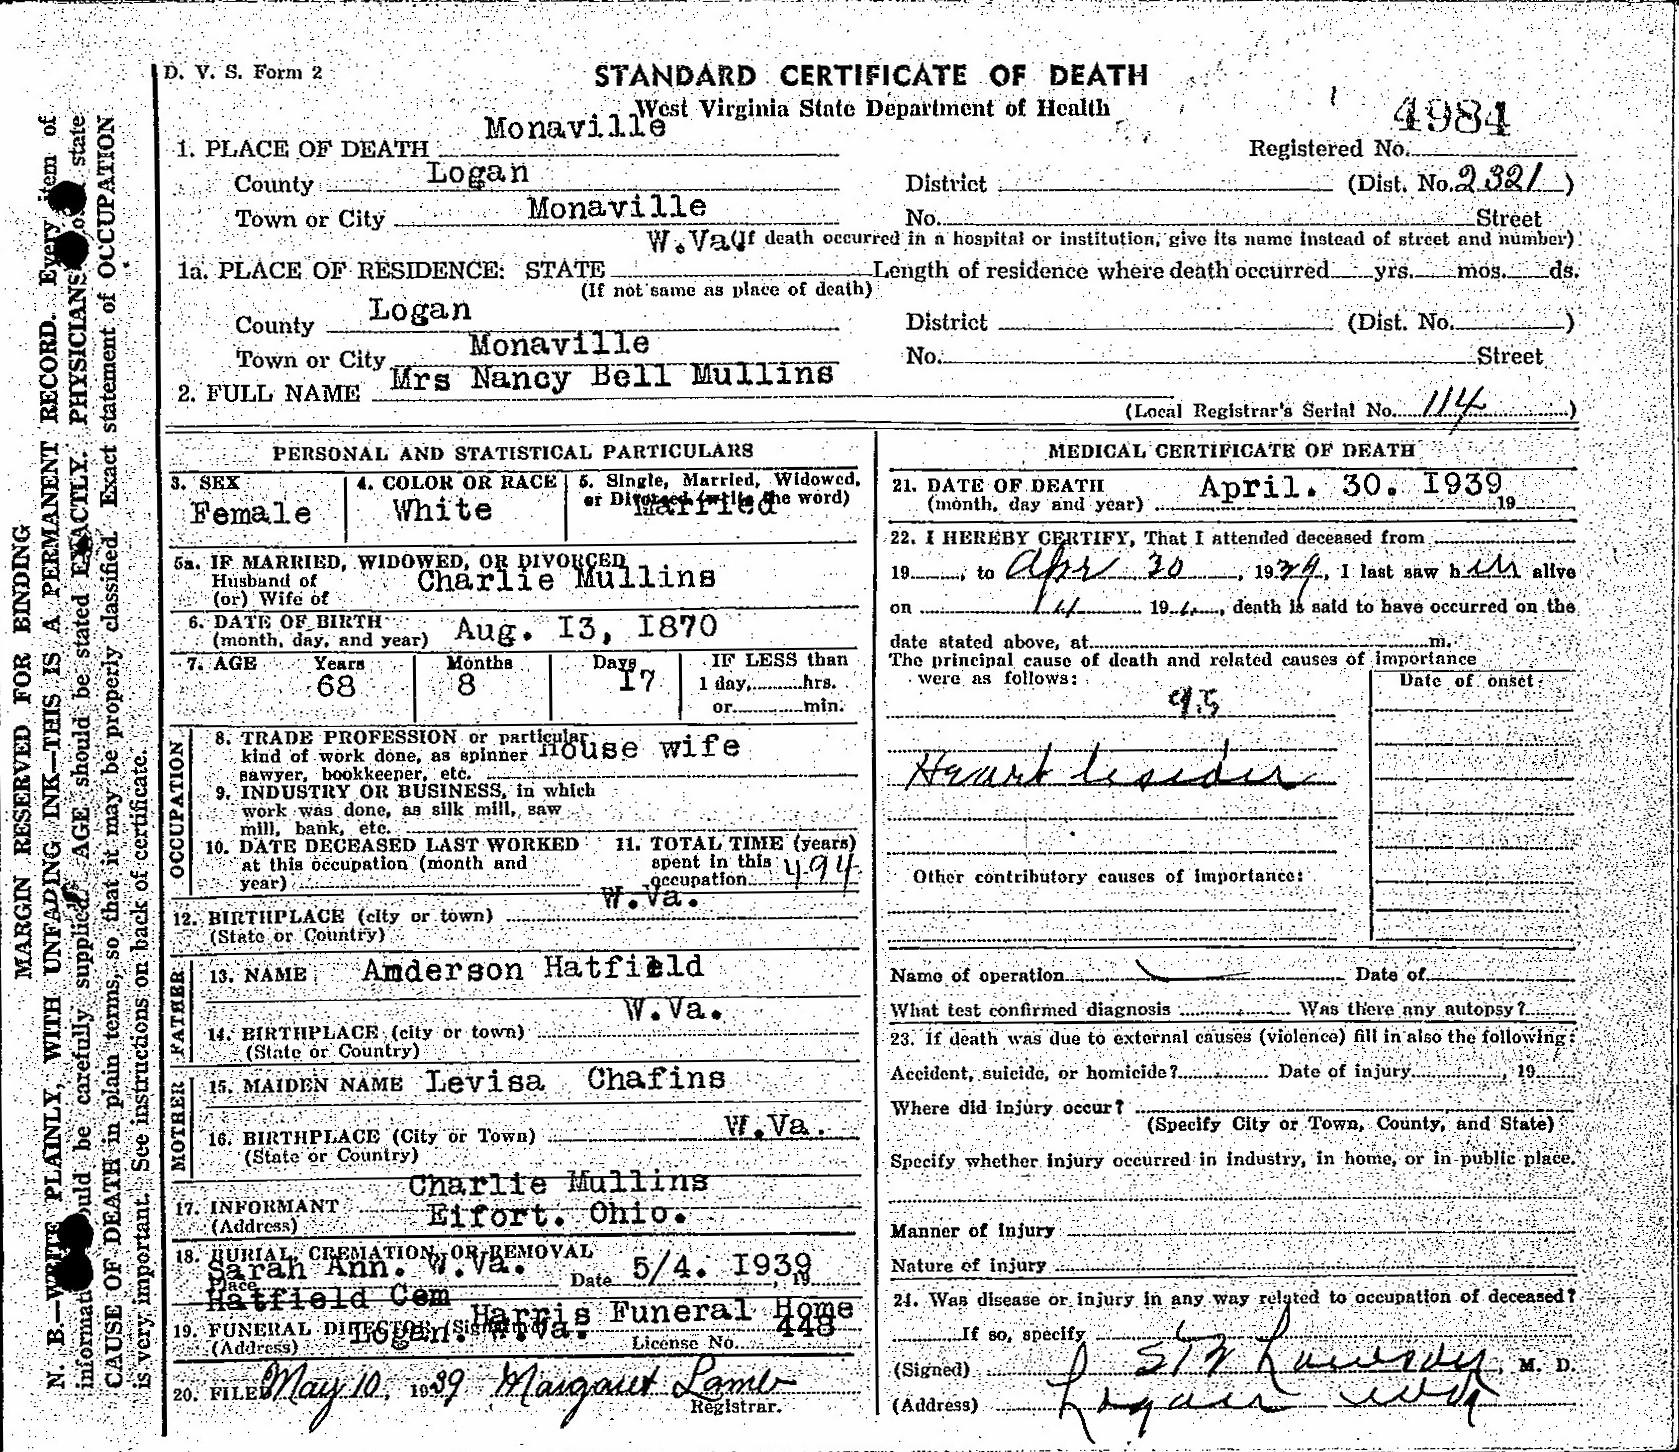 D. V. S. Form 2
STANDARD CERTIFICATE OF DEATH
West Virginia State Department of Health
4984
1. PLACE OF DEATH Monaville
Registered No.
County Logan
District (Dist. No. 2321)
Town or City Monaville
No. Street
W.Va. (If death occurred in a hospital or institution, give its name instead of street and number)
1a. PLACE OF RESIDENCE: STATE Length of residence where death occurred yrs. mos. ds.
(If not same as place of death)
County Logan
District (Dist. No. )
Town or City Monaville
No. Street
2. FULL NAME Mrs Nancy Bell Mullins
(Local Registrar's Serial No. 114 )
PERSONAL AND STATISTICAL PARTICULARS
3. SEX Female
4. COLOR OR RACE White
5. Single, Married, Widowed, or Divorced (write the word) Married
5a. IF MARRIED, WIDOWED, OR DIVORCED
Husband of
(or) Wife of Charlie Mullins
6. DATE OF BIRTH
(month, day, and year) Aug. I3, I870
7. AGE Years Months Days IF LESS than
68 8 I7 1 day, hrs.
or min.
OCCUPATION
8. TRADE PROFESSION or particular
kind of work done, as spinner house wife
sawyer, bookkeeper, etc.
9. INDUSTRY OR BUSINESS, in which
work was done, as silk mill, saw
mill, bank, etc.
10. DATE DECEASED LAST WORKED
at this occupation (month and
year)
11. TOTAL TIME (years)
spent in this
occupation 494
12. BIRTHPLACE (city or town) W.Va.
(State or Country)
FATHER
13. NAME Amderson Hatfield
W.Va.
14. BIRTHPLACE (city or town)
(State or Country)
MOTHER
15. MAIDEN NAME Levisa Chafins
16. BIRTHPLACE (City or Town) W.Va.
(State or Country)
Charlie Mullins
17. INFORMANT
(Address) Eifort. Ohio.
18. BURIAL, CREMATION, OR REMOVAL
Place Sarah Ann. W.Va. Date 5/4. I939 19
Hatfield Cem
Harris Funeral Home
19. FUNERAL DIRECTOR (Signature)
(Address) Logan. W.Va. License No. 448
20. FILED May 10, 1939 Margaret Lamb
Registrar.
MEDICAL CERTIFICATE OF DEATH
21. DATE OF DEATH
(month, day and year) April. 30. I939 19
22. I HEREBY CERTIFY, That I attended deceased from
19 , to Apr 30 , 1939, I last saw her alive
on 19 , death is said to have occurred on the
date stated above, at m.
The principal cause of death and related causes of importance
were as follows:
Date of onset
95
Heart
Other contributory causes of importance:
Name of operation Date of
What test confirmed diagnosis Was there any autopsy?
23. If death was due to external causes (violence) fill in also the following:
Accident, suicide, or homicide? Date of injury , 19
Where did injury occur?
(Specify City or Town, County, and State)
Specify whether injury occurred in industry, in home, or in public place.
Manner of injury
Nature of injury
24. Was disease or injury in any way related to occupation of deceased?
If so, specify
(Signed) , M. D.
(Address) Logan W Va
MARGIN RESERVED FOR BINDING
N. B.—WRITE PLAINLY, WITH UNFADING INK—THIS IS A PERMANENT RECORD. Every item of
information should be carefully supplied. AGE should be stated EXACTLY. PHYSICIANS should state
CAUSE OF DEATH in plain terms, so that it may be properly classified. Exact statement of OCCUPATION
is very important. See instructions on back of certificate.